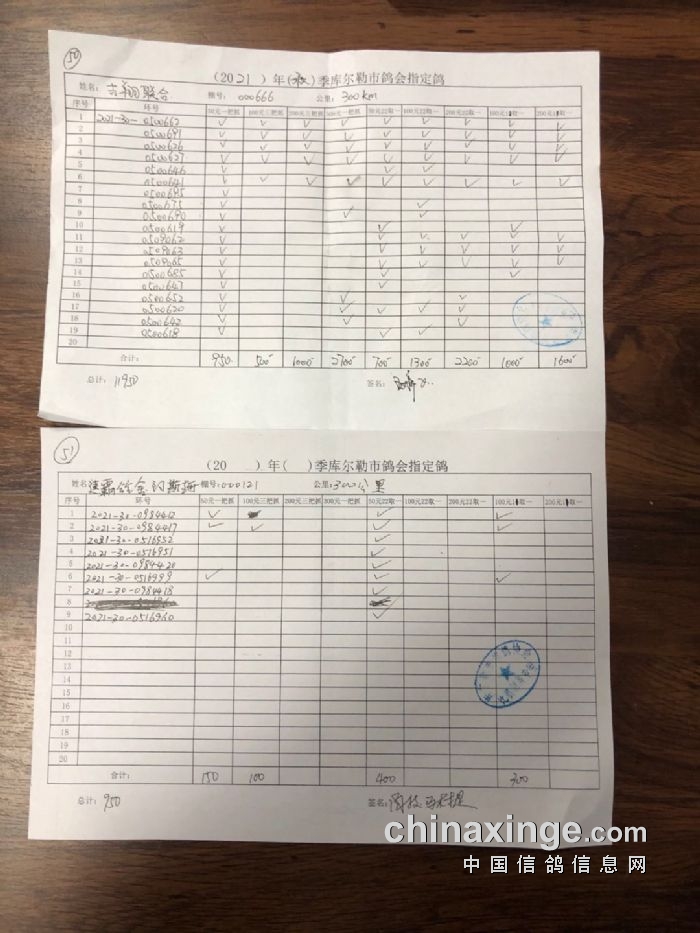 50
（2021）年（秋）季库尔勒市鸽会指定鸽
姓名： 联合 棚号： 000666 公里： 300km
序号 环号 50元一把抓 100元三把抓 200元三把抓 300元一把抓 50元22取一 100元22取一 200元22取一 100元1取一 200元1取一
1 2021-30-0500662 ✓ ✓ ✓ ✓ ✓ ✓ ✓ ✓ ✓
2 0500691 ✓ ✓ ✓ ✓ ✓ ✓ ✓ ✓ ✓
3 0500626 ✓ ✓ ✓ ✓ ✓ ✓ ✓ ✓ ✓
4 0500627 ✓ ✓ ✓ ✓ ✓ ✓ ✓ ✓ ✓
5 0500646 ✓ ✓ ✓
6 0500641 ✓ ✓ ✓ ✓ ✓ ✓ ✓ ✓ ✓
7 0500695 ✓
8 0500675 ✓ ✓
9 0500690 ✓ ✓ ✓
10 0500619 ✓ ✓ ✓
11 0509062 ✓ ✓ ✓ ✓ ✓ ✓
12 0509063 ✓ ✓ ✓ ✓ ✓ ✓
13 0509065 ✓ ✓ ✓ ✓ ✓ ✓
14 0500685 ✓ ✓ ✓
15 0500647 ✓ ✓
16 0500652 ✓ ✓ ✓
17 0500620 ✓ ✓ ✓ ✓ ✓
18 0500642 ✓ ✓ ✓
19 0500618 ✓ ✓ ✓
20
合计： 950 500 1000 2700 700 1300 2200 1000 1600
总计： 11950 签名：
51
（20 ）年（ ）季库尔勒市鸽会指定鸽
姓名： 棚号：000121 公里：300公里
序号 环号 50元一把抓 100元三把抓 200元三把抓 300元一把抓 50元22取一 100元22取一 200元22取一 100元1取一 200元1取一
1 2021-30-0984412 ✓ ✓ ✓
2 2021-30-0984417 ✓ ✓ ✓ ✓
3 2021-30-0516952 ✓
4 2021-30-0516951 ✓
5 2021-30-0984420 ✓
6 2021-30-0516999 ✓ ✓ ✓
7 2021-30-0984418 ✓
8
9 2021-30-0516960 ✓
10
11
12
13
14
15
16
17
18
19
20
合计： 150 100 400 300
总计： 950 签名：
chinaxinge.com
中国信鸽信息网